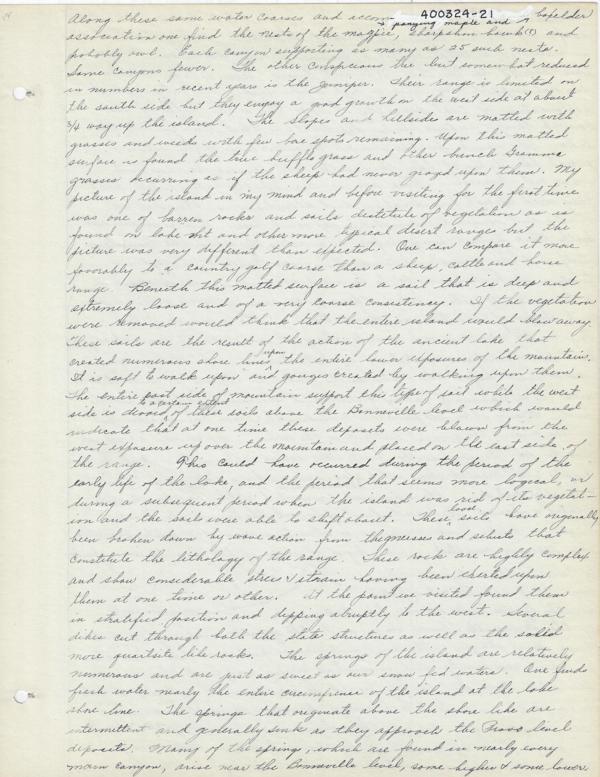 400324-21
Along these same water coarses and accom- panying maple and boxelder
association one find the nests of the magpie, sharpshin hawk(?) and
pobobly owl. Each canyon supporting as many as 25 such nests.
Some canyons fewer. The other conspicuous tho but somewhat reduced
in numbers in recent years is the Juniper. Their range is limited on
the south side but they enjoy a good growth on the west side at about
3/4 way up the island. The slopes and hillsides are matted with
grasses and weeds with few bare spots remaining. Upon this matted
surface is found the true buffalo grass and other bunch Gramma
grasses occurring as if the sheep had never grazed upon them. My
picture of the island in my mind and before visiting for the first time
was one of barren rocks and soils destitute of vegetation as is
found on lake and other more typical desert ranges but the
picture was very different than expected. One can compare it more
favorably to a country golf coarse than a sheep, cattle and horse
range. Beneath this matted surface is a soil that is deep and
extremely loose and of a very coarse consistency. If the vegetation
were removed would think that the entire island would blow away.
These soils are the result of the action of the ancient lake that
created numerous shore lines upon the entire lower exposures of the mountain.
It is soft to walk upon and gouges created by walking upon them.
The entire east side of mountain support this type of soil while the west
side is devoid to a certain extent of these soils above the Bonneville level which would
indicate that at one time these deposits were blown from the
west exposure up over the mountain and placed on the east side of
the range. This could have occurred during the period of the
early life of the lake, and the period that seems more logical, or
during a subsequent period when the island was rid of its vegetat-
ion and the soils were able to shift about. These loose soils have originally
been broken down by wave action from the gneisses and schists that
constitute the lithology of the range. These rock are highly complex
and show considerable stress & strain having been exerted upon
them at one time or other. At the point we visited found them
in stratified position and dipping abruptly to the west. Several
dikes cut through both the slate structures as well as the solid
more quartsite like rocks. The springs of the island are relatively
numerous and are just as sweet as our snow fed waters. One finds
fresh water nearly the entire circumfrence of the island at the lake
shore line. The springs that originate above the shore line are
intermittent and generally sink as they approach the Provo level
deposits. Many of the springs, which are found in nearly every
main canyon, arise near the Bonneville level, some higher & some lower.